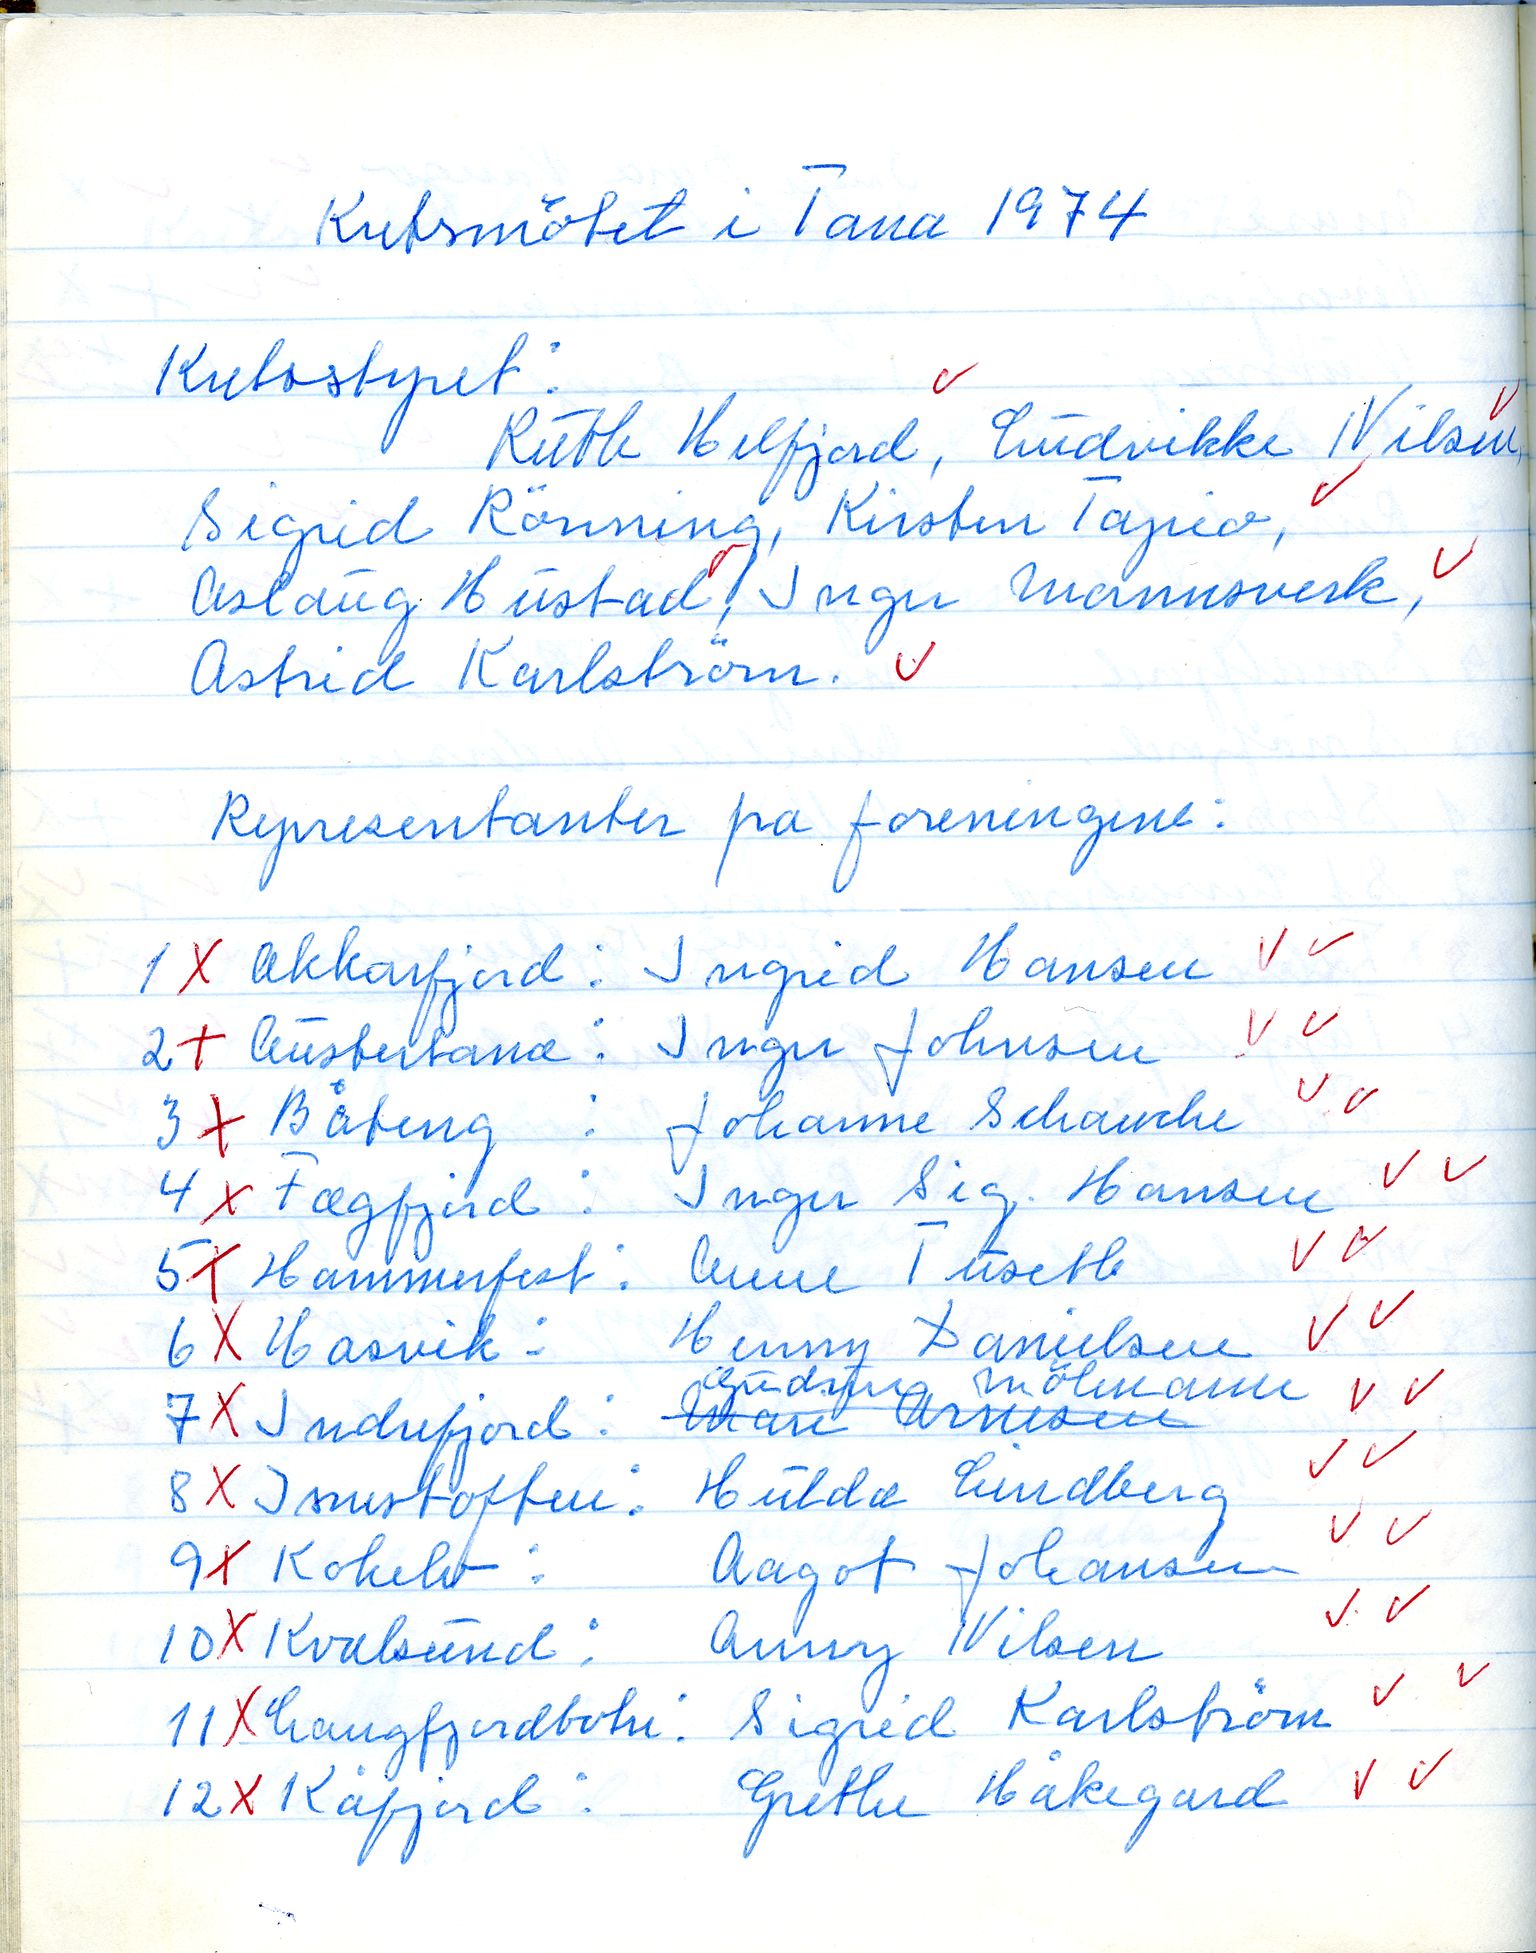 Kretsmötet i Tana 1974
Kretsstyret:
Ruth Helfjord, Ludvikke Nilsen,
Sigrid Rönning, Kirsten Tapio,
Aslaug Hustad, Inger Mannsverk,
Astrid Karlström.
Representanter fra foreningene:
1 X Akkarfjord: Ingrid Hansen
2 + Austertana: Inger Johnsen
3 + Båteng : Johanne Schanche
4 x Fægfjord : Inger Sig. Hansen
5 + Hammerfest: Anne Tuseth
6 X Hasvik: Henny Danielsen
Gudrun Mölmann
7 X Indrefjord: Mari Arnesen
8 X Isnestoften: Hulda Lindberg
9 x Kokelv : Aagot Johansen
10 X Kvalsund: Anny Nilsen
11 X Langfjordbotn: Sigrid Karlström
12 X Kåfjord : Grethe Håkegard